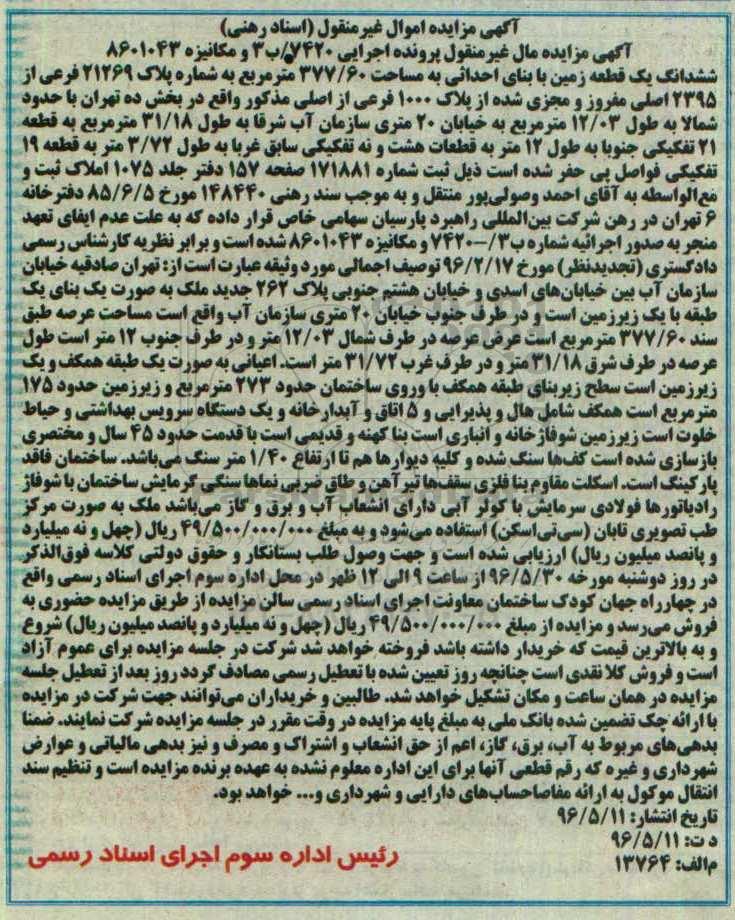 آگهی مزایده اموال غیرمنقول (اسناد رهنی)
آگهی مزایده مال غیرمنقول پرونده اجرایی ۷۴۲۰/ب۳ و مکانیزه ۸۶۰۱۰۴۳
ششدانگ یک قطعه زمین با بنای احداثی به مساحت ۳۷۷/۶۰ مترمربع به شماره پلاک ۲۱۲۶۹ فرعی از
۲۳۹۵ اصلی مفروز و مجزی شده از پلاک ۱۰۰۰ فرعی از اصلی مذکور واقع در بخش ده تهران با حدود
شمالا به طول ۱۲/۰۳ مترمربع به خیابان ۲۰ متری سازمان آب شرقا به طول ۳۱/۱۸ مترمربع به قطعه
۲۱ تفکیکی جنوبا به طول ۱۲ متر به قطعات هشت و نه تفکیکی سابق غربا به طول ۳/۷۲ متر به قطعه ۱۹
تفکیکی فواصل پی حفر شده است ذیل ثبت شماره ۱۷۱۸۸۱ صفحه ۱۵۷ دفتر جلد ۱۰۷۵ املاک ثبت و
مع‌الواسطه به آقای احمد وصولی‌پور منتقل و به موجب سند رهنی ۱۴۸۴۴۰ مورخ ۸۵/۶/۵ دفترخانه
۶ تهران در رهن شرکت بین‌المللی راهبرد پارسیان سهامی خاص قرار داده که به علت عدم ایفای تعهد
منجر به صدور اجرائیه شماره ب۳/-۷۴۲۰ و مکانیزه ۸۶۰۱۰۴۳ شده است و برابر نظریه کارشناس رسمی
دادگستری (تجدیدنظر) مورخ ۹۶/۲/۱۷ توصیف اجمالی مورد وثیقه عبارت است از: تهران صادقیه خیابان
سازمان آب بین خیابان‌های اسدی و خیابان هشتم جنوبی پلاک ۲۶۲ جدید ملک به صورت یک بنای یک
طبقه با یک زیرزمین است و در طرف جنوب خیابان ۲۰ متری سازمان آب واقع است مساحت عرصه طبق
سند ۳۷۷/۶۰ مترمربع است عرض عرصه در طرف شمال ۱۲/۰۳ متر و در طرف جنوب ۱۲ متر است طول
عرصه در طرف شرق ۳۱/۱۸ متر و در طرف غرب ۳۱/۷۲ متر است. اعیانی به صورت یک طبقه همکف و یک
زیرزمین است سطح زیربنای طبقه همکف با وروی ساختمان حدود ۲۷۳ مترمربع و زیرزمین حدود ۱۷۵
مترمربع است همکف شامل هال و پذیرایی و ۵ اتاق و آبدارخانه و یک دستگاه سرویس بهداشتی و حیاط
خلوت است زیرزمین شوفاژخانه و انباری است بنا کهنه و قدیمی است با قدمت حدود ۴۵ سال و مختصری
بازسازی شده است کف‌ها سنگ شده و کلیه دیوارها هم تا ارتفاع ۱/۴۰ متر سنگ می‌باشد. ساختمان فاقد
پارکینگ است. اسکلت مقاوم بنا فلزی سقف‌ها تیرآهن و طاق ضربی نماها سنگی گرمایش ساختمان با شوفاژ
رادیاتورها فولادی سرمایش با کولر آبی دارای انشعاب آب و برق و گاز می‌باشد ملک به صورت مرکز
طب تصویری تابان (سی‌تی‌اسکن) استفاده می‌شود و به مبلغ ۴۹/۵۰۰/۰۰۰/۰۰۰ ریال (چهل و نه میلیارد
و پانصد میلیون ریال) ارزیابی شده است و جهت وصول طلب بستانکار و حقوق دولتی کلاسه فوق‌الذکر
در روز دوشنبه مورخه ۹۶/۵/۳۰ از ساعت ۹ الی ۱۲ ظهر در محل اداره سوم اجرای اسناد رسمی واقع
در چهارراه جهان کودک ساختمان معاونت اجرای اسناد رسمی سالن مزایده از طریق مزایده حضوری به
فروش می‌رسد و مزایده از مبلغ ۴۹/۵۰۰/۰۰۰/۰۰۰ ریال (چهل و نه میلیارد و پانصد میلیون ریال) شروع
و به بالاترین قیمت که خریدار داشته باشد فروخته خواهد شد شرکت در جلسه مزایده برای عموم آزاد
است و فروش کلا نقدی است چنانچه روز تعیین شده با تعطیل رسمی مصادف گردد روز بعد از تعطیل جلسه
مزایده در همان ساعت و مکان تشکیل خواهد شد. طالبین و خریداران می‌توانند جهت شرکت در مزایده
با ارائه چک تضمین شده بانک ملی به مبلغ پایه مزایده در وقت مقرر در جلسه مزایده شرکت نمایند. ضمنا
بدهی‌های مربوط به آب، برق، گاز، اعم از حق انشعاب و اشتراک و مصرف و نیز بدهی مالیاتی و عوارض
شهرداری و غیره که رقم قطعی آنها برای این اداره معلوم نشده به عهده برنده مزایده است و تنظیم سند
انتقال موکول به ارائه مفاصاحساب‌های دارایی و شهرداری و... خواهد بود.
تاریخ انتشار: ۹۶/۵/۱۱
د ت: ۹۶/۵/۱۱
م‌الف: ۱۳۷۶۴
رئیس اداره سوم اجرای اسناد رسمی